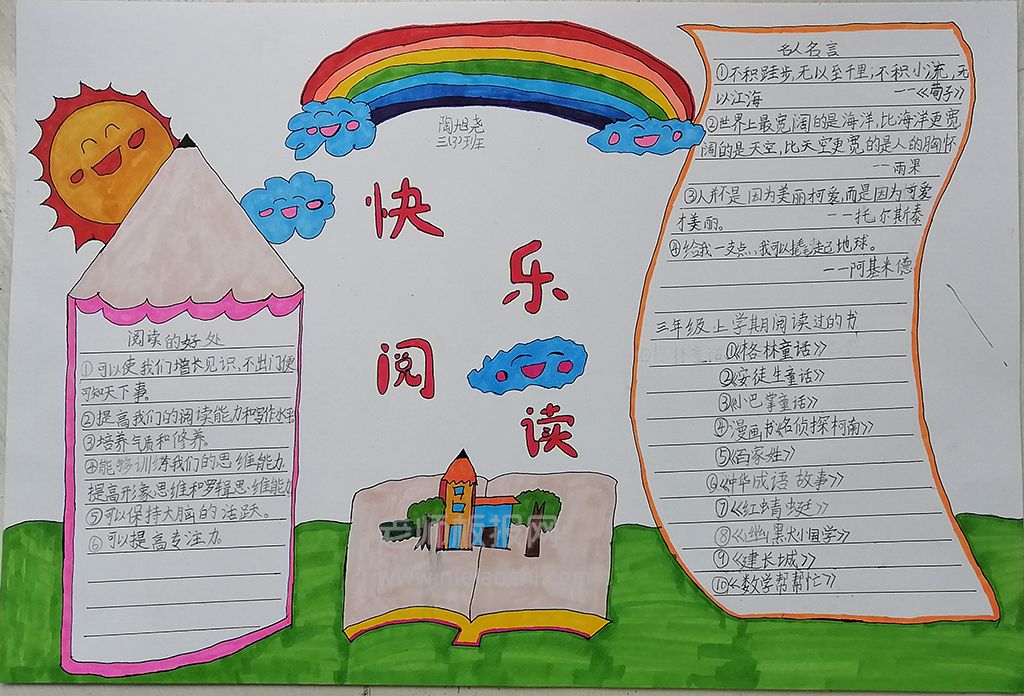 陶旭尧
三(3)班
快
乐
阅
读
阅读的好处
①可以使我们增长见识,不出门便
可知天下事。
②提高我们的阅读能力和写作水平
③培养气质和修养。
④能够训练我们的思维能力
提高形象思维和罗辑思维能力
⑤可以保持大脑的活跃。
⑥可以提高专注力
名人名言
①不积跬步,无以至千里;不积小流,无
以江海 ——《荀子》
②世界上最宽阔的是海洋,比海洋更宽
阔的是天空,比天空更宽的是人的胸怀
——雨果
③人并不是因为美丽可爱,而是因为可爱
才美丽。 ——托尔斯泰
④给我一支点,我可以撬起地球。
——阿基米德
三年级上学期阅读过的书
①《格林童话》
②《安徒生童话》
③《小巴掌童话》
④漫画书《名侦探柯南》
⑤《百家姓》
⑥《中华成语故事》
⑦《红蜻蜓》
⑧《幽默大国学》
⑨《建长城》
⑩《数学帮帮忙》
老师板报网